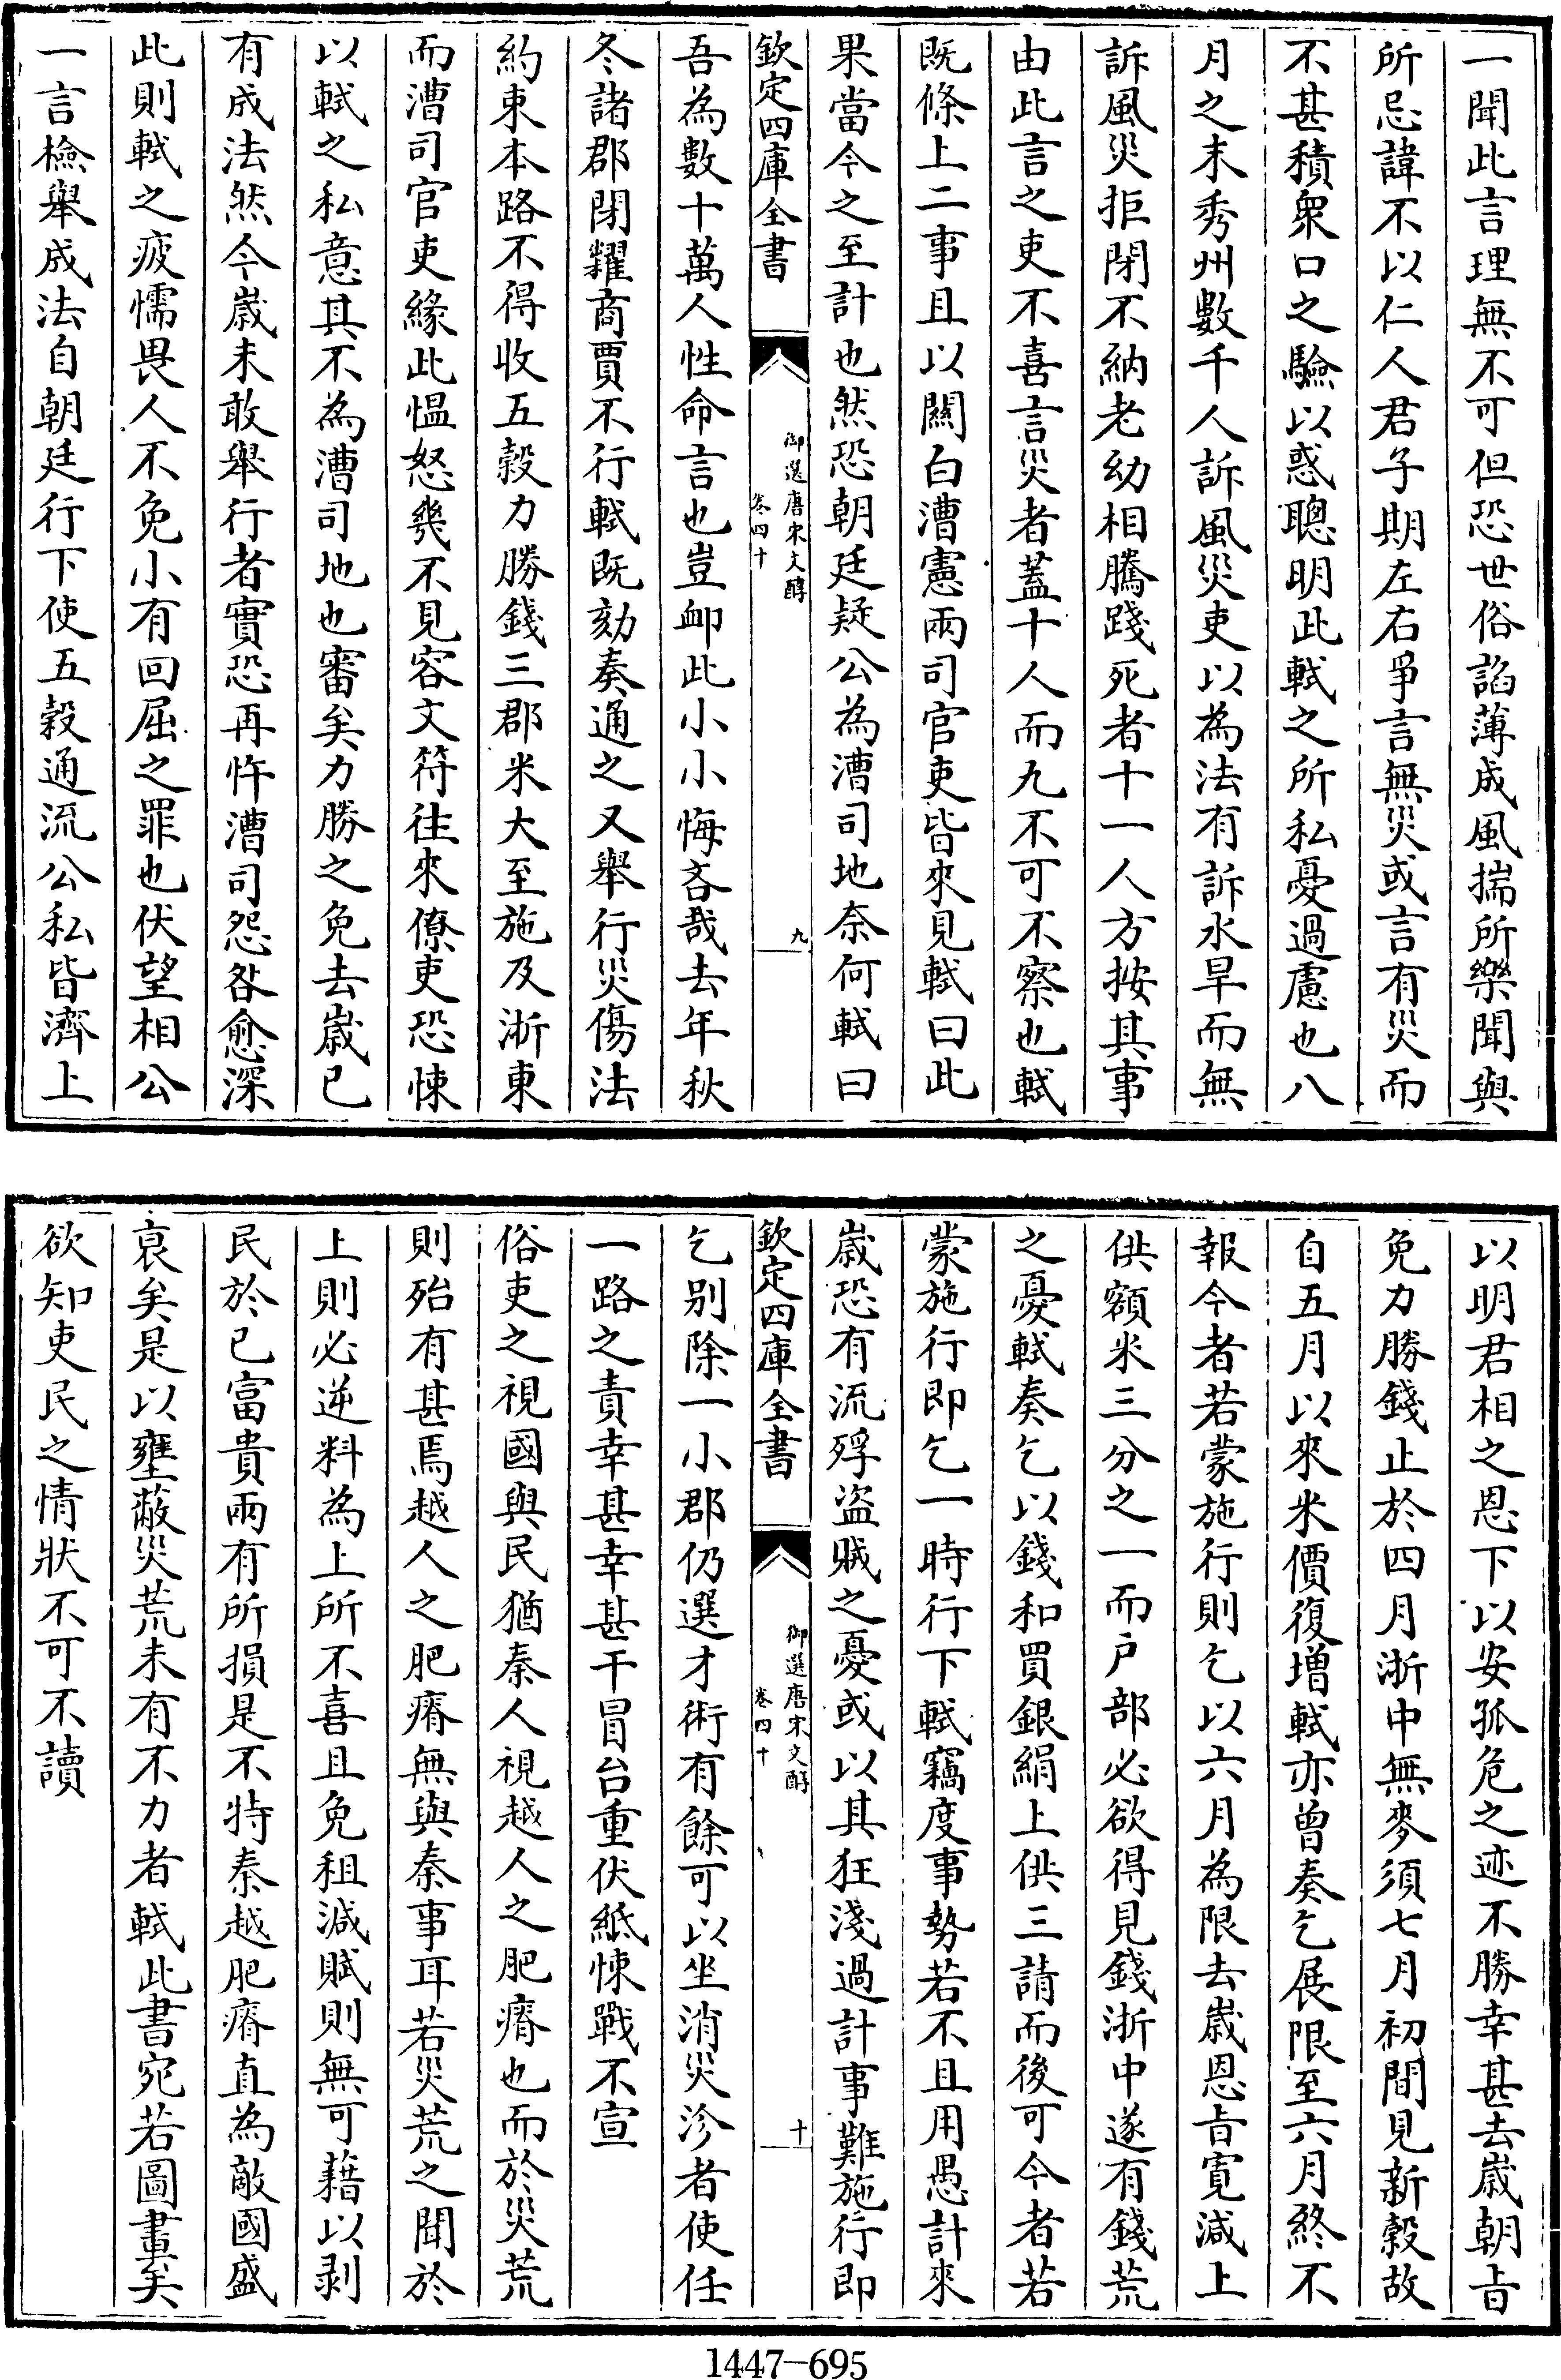 一聞此言理無不可但恐世俗諂薄成風揣所樂聞與
所忌諱不以仁人君子期左右爭言無災或言有災而
不甚積衆口之驗以惑聰明此軾之所私憂過慮也八
月之末秀州數千人訴風災吏以為法有訴水旱而無
訴風災拒閉不納老幼相騰踐死者十一人方按其事
由此言之吏不喜言災者蓋十人而九不可不察也軾
既條上二事且以關白漕憲兩司官吏皆來見軾曰此
果當今之至計也然恐朝廷疑公為漕司地奈何軾曰
欽定四庫全書
御選唐宋文醇
卷四十
九
吾為數十萬人性命言也豈卹此小小悔吝哉去年秋
冬諸郡閉糶商賈不行軾既劾奏通之又舉行災傷法
約束本路不得收五穀力勝錢三郡米大至施及浙東
而漕司官吏緣此慍怒幾不見容文符往來僚吏恐悚
以軾之私意其不為漕司地也審矣力勝之免去歲已
有成法然今歲未敢舉行者實恐再忤漕司怨咎愈深
此則軾之疲懦畏人不免小有回屈之罪也伏望相公
一言檢舉成法自朝廷行下使五穀通流公私皆濟上
以明君相之恩下以安孤危之迹不勝幸甚去歲朝㫖
免力勝錢止於四月浙中無麥須七月初間見新穀故
自五月以來米價復增軾亦曾奏乞展限至六月終不
報今者若蒙施行則乞以六月為限去歲恩㫖寛減上
供額米三分之一而户部必欲得見錢浙中遂有錢荒
之憂軾奏乞以錢和買銀絹上供三請而後可今者若
蒙施行即乞一時行下軾竊度事勢若不且用愚計來
歲恐有流殍盜賊之憂或以其狂淺過計事難施行即
欽定四庫全書
御選唐宋文醇
卷四十
十
乞别除一小郡仍選才術有餘可以坐消災沴者使任
一路之責幸甚幸甚干冒台重伏紙悚戰不宣
俗吏之視國與民猶秦人視越人之肥瘠也而於災荒
則殆有甚焉越人之肥瘠無與秦事耳若災荒之聞於
上則必逆料為上所不喜且免租減賦則無可藉以剥
民於已富貴兩有所損是不特秦越肥瘠直為敵國盛
衰矣是以壅蔽災荒未有不力者軾此書宛若圖畫矣
欲知吏民之情狀不可不讀
1447-695